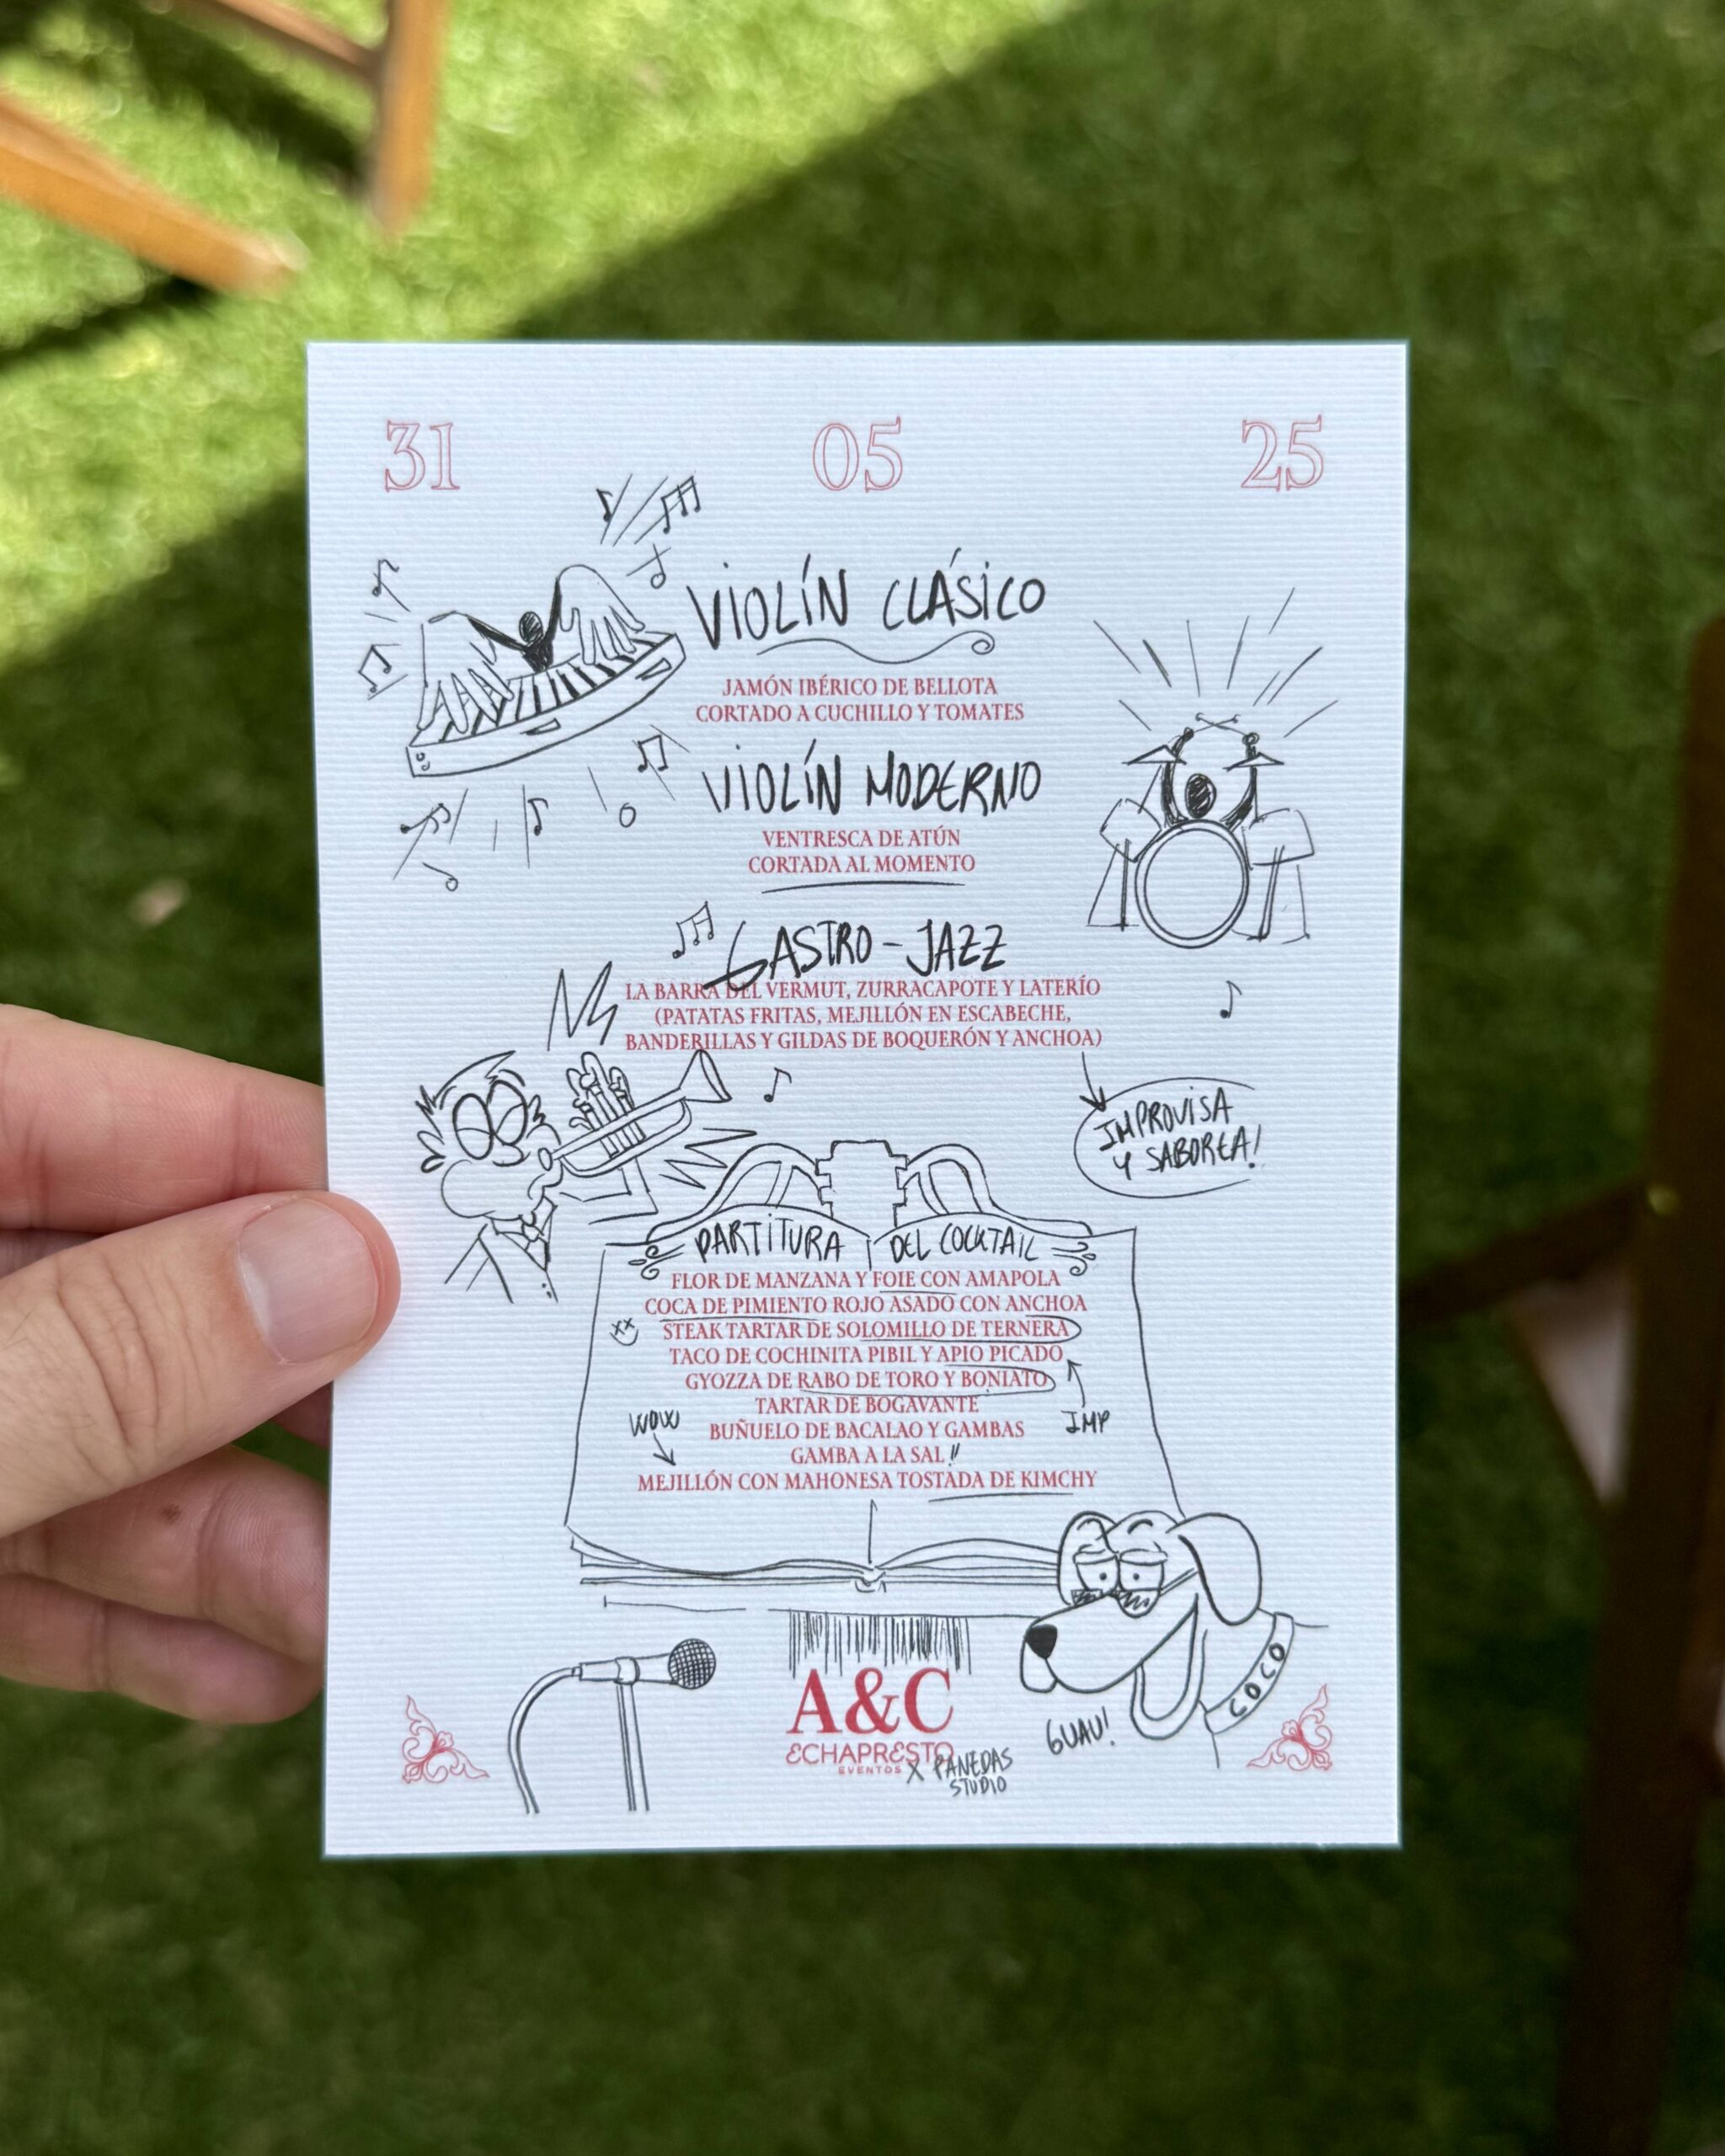 31 05 25
VIOLÍN CLÁSICO
JAMÓN IBÉRICO DE BELLOTA
CORTADO A CUCHILLO Y TOMATES
VIOLÍN MODERNO
VENTRESCA DE ATÚN
CORTADA AL MOMENTO
GASTRO-JAZZ
LA BARRA DEL VERMUT, ZURRACAPOTE Y LATERÍO
(PATATAS FRITAS, MEJILLÓN EN ESCABECHE,
BANDERILLAS Y GILDAS DE BOQUERÓN Y ANCHOA)
IMPROVISA
Y SABOREA!
PARTITURA DEL COCKTAIL
FLOR DE MANZANA Y FOIE CON AMAPOLA
COCA DE PIMIENTO ROJO ASADO CON ANCHOA
STEAK TARTAR DE SOLOMILLO DE TERNERA
TACO DE COCHINITA PIBIL Y APIO PICADO
GYOZZA DE RABO DE TORO Y BONIATO
TARTAR DE BOGAVANTE
WOW
IMP
BUÑUELO DE BACALAO Y GAMBAS
GAMBA A LA SAL!!
MEJILLÓN CON MAHONESA TOSTADA DE KIMCHY
COCO
GUAU!
A&C
ECHAPRESTO
EVENTOS
X PANEDAS
STUDIO